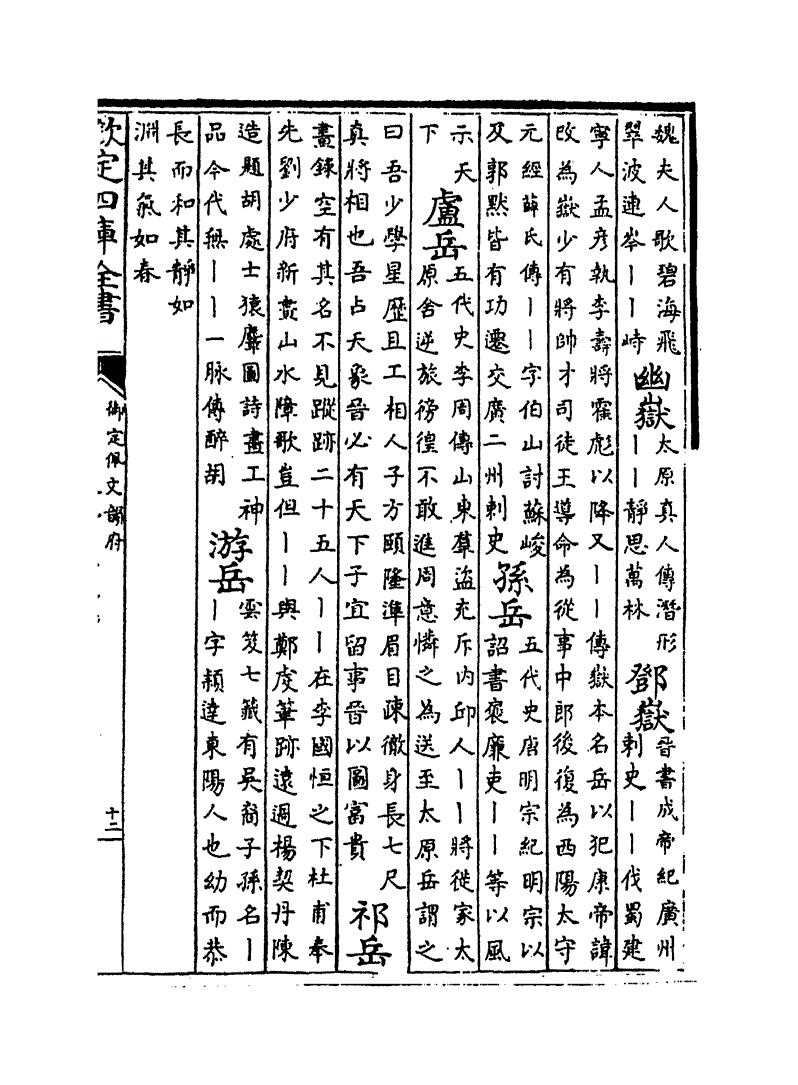 魏夫人歌碧海飛
翠波連岑丨丨峙
幽嶽
太原真人傳潛形
丨丨靜思萬林
鄧嶽
晉書成帝紀廣州
刺史丨丨伐蜀建
寧人孟彦執李壽將霍彪以降又丨丨傳嶽本名岳以犯康帝諱
改為嶽少有將帥才司徒王導命為從事中郎後復為西陽太守
元經薛氏傳丨丨字伯山討蘇峻
及郭黙皆有功遷交廣二州刺史
孫岳
五代史唐明宗紀明宗以
詔書褒廉吏丨丨等以風
示天
下
盧岳
五代史李周傳山東羣盜充斥内邱人丨丨將從家太
原舍逆旅徬徨不敢進周意憐之為送至太原岳謂之
曰吾少學星歴且工相人子方頤隆準眉目疎徹身長七尺
真將相也吾占天象晉必有天下子宜留事晉以圖富貴
祁岳
畫錄空有其名不見蹤跡二十五人丨丨在李國恒之下杜甫奉
先劉少府新畫山水障歌豈但丨丨與鄭虔筆跡遠過楊契丹陳
造題胡處士猿麞圖詩畫工神
品今代無丨丨一脉傳醉胡
游岳
雲笈七籖有吳裔子孫名丨
丨字頴達東陽人也幼而恭
長而和其靜如
淵其氣如春
欽定四庫全書
御定佩文韻府
十二